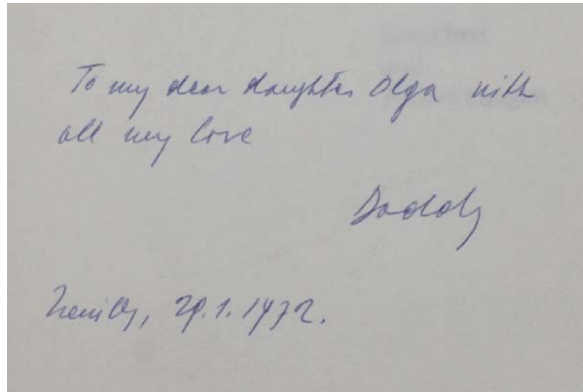 To my dear daughter Olga with
all my love
Daddy
29.1.1972.